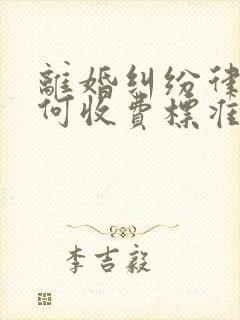 離婚糾纷律
何收費標准
李吉毅